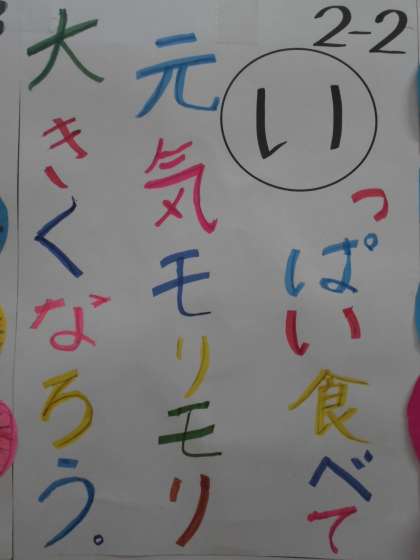 2-2
い
っぱい食べて
元気モリモリ
大きくなろう。